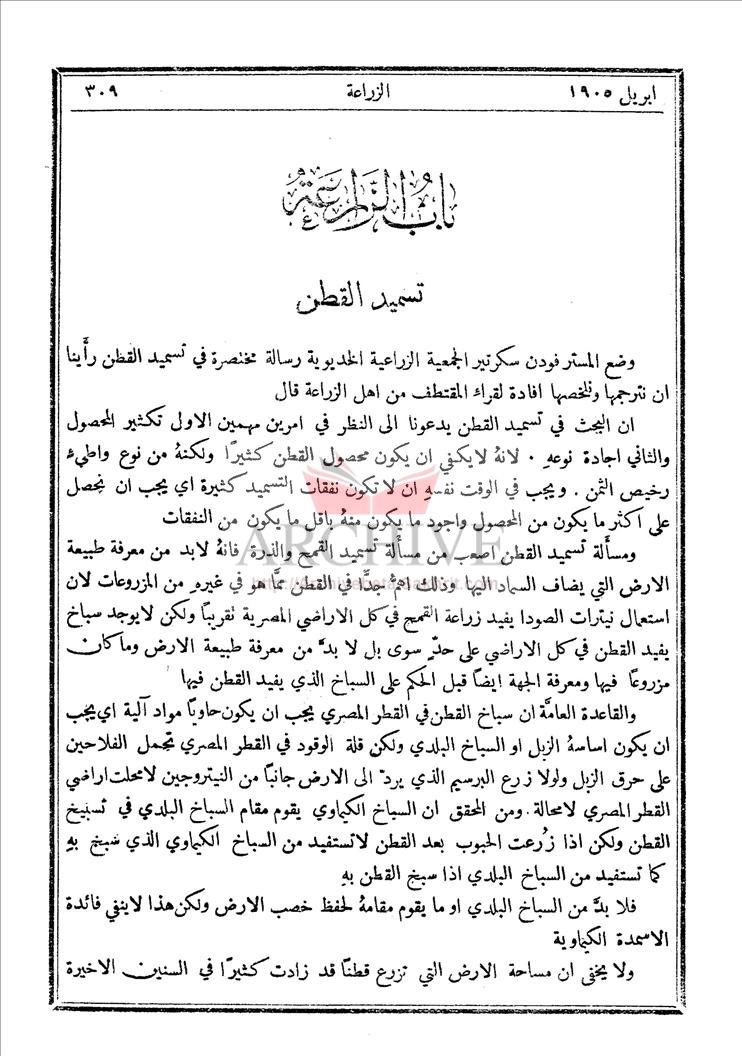 ابريل ١٩٠٥ الزراعة ٣٠٩
باب الزراعة
تسميد القطن
وضع المستر فودن سكرتير الجمعية الزراعية الخديوية رسالة مختصرة في تسميد القطن رأينا
ان نترجمها ونلخصها افادة لقراء المقتطف من اهل الزراعة قال
ان البحث في تسميد القطن يدعونا الى النظر في امرين مهمين الاول تكثير المحصول
والثاني اجادة نوعهِ ٠ لانهُ لا يكفي ان يكون محصول القطن كثيرًا ولكنهُ من نوع واطيء
رخيص الثمن . ويجب في الوقت نفسهِ ان لا تكون نفقات التسميد كثيرة اي يجب ان يحصل
على اكثر ما يكون من المحصول واجود ما يكون منهُ باقل ما يكون من النفقات
ARCHIVE
ومسأَلة تسميد القطن اصعب من مسأَلة تسميد القمح والذرة فانهُ لا بد من معرفة طبيعة
الارض التي يضاف السماد اليها وذلك اهمُّ جدًّا في القطن ممَّا هو في غيرهِ من المزروعات لان
استعمال نيترات الصودا يفيد زراعة القمح في كل الاراضي المصرية تقريبًا ولكن لا يوجد سباخ
يفيد القطن في كل الاراضي على حدٍّ سوى بل لا بدَّ من معرفة طبيعة الارض وما كان
مزروعًا فيها ومعرفة الجهة ايضًا قبل الحكم على السباخ الذي يفيد القطن فيها
والقاعدة العامَّة ان سباخ القطن في القطر المصري يجب ان يكون حاويًا مواد آلية اي يجب
ان يكون اساسهُ الزبل او السباخ البلدي ولكن قلة الوقود في القطر المصري تحمل الفلاحين
على حرق الزبل ولولا زرع البرسيم الذي يردّ الى الارض جانبًا من النيتروجين لامحلت اراضي
القطر المصري لا محالة . ومن المحقق ان السباخ الكيماوي يقوم مقام السباخ البلدي في تسبيخ
القطن ولكن اذا زُرعت الحبوب بعد القطن لا تستفيد من السباخ الكيماوي الذي سبخ بهِ
كما تستفيد من السباخ البلدي اذا سبخ القطن بهِ
فلا بدَّ من السباخ البلدي او ما يقوم مقامهُ لحفظ خصب الارض ولكن هذا لا ينفي فائدة
الاسمدة الكيماوية
ولا يخفى ان مساحة الارض التي تزرع قطنًا قد زادت كثيرًا في السنين الاخيرة